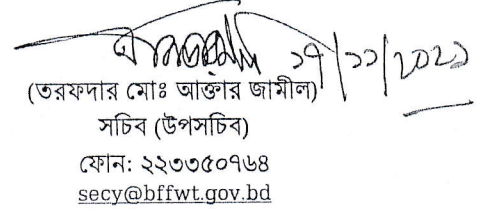 ১৭/১১/২০২১
(তরফদার মোঃ আক্তার জামীল)
সচিব (উপসচিব)
ফোন: ২২৩৩৫০৭৬৪
secy@bffwt.gov.bd